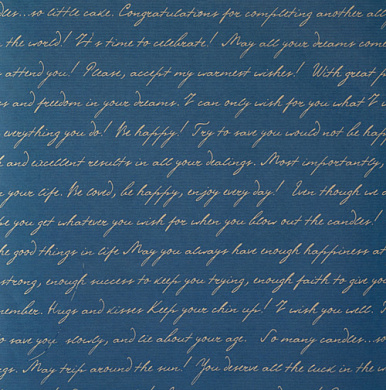 les...so little cake. Congratulations for completing another
the world! It's time to celebrate! May all your dreams come
attend you! Please, accept my warmest wishes! With great
s and freedom in your dreams. I can only wish for you what I
everything you do! Be happy! Try to save you would not be hap
and excellent results in all your dealings. Most importantly,
your life. Be loved, be happy, enjoy every day! Even though we
you get whatever you wish for when you blow out the candles!
he good things in life May you always have enough happiness
strong, enough success to keep you trying, enough faith to give you
member. Hugs and kisses Keep your chin up! I wish you well.
o save you slowly, and lie about your age. So many candles...so
gs. May trip around the sun! You deserve all the luck in the